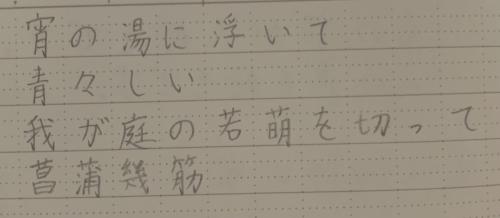 宵の湯に浮いて
青々しい
我が庭の若萌を切って
菖蒲幾筋